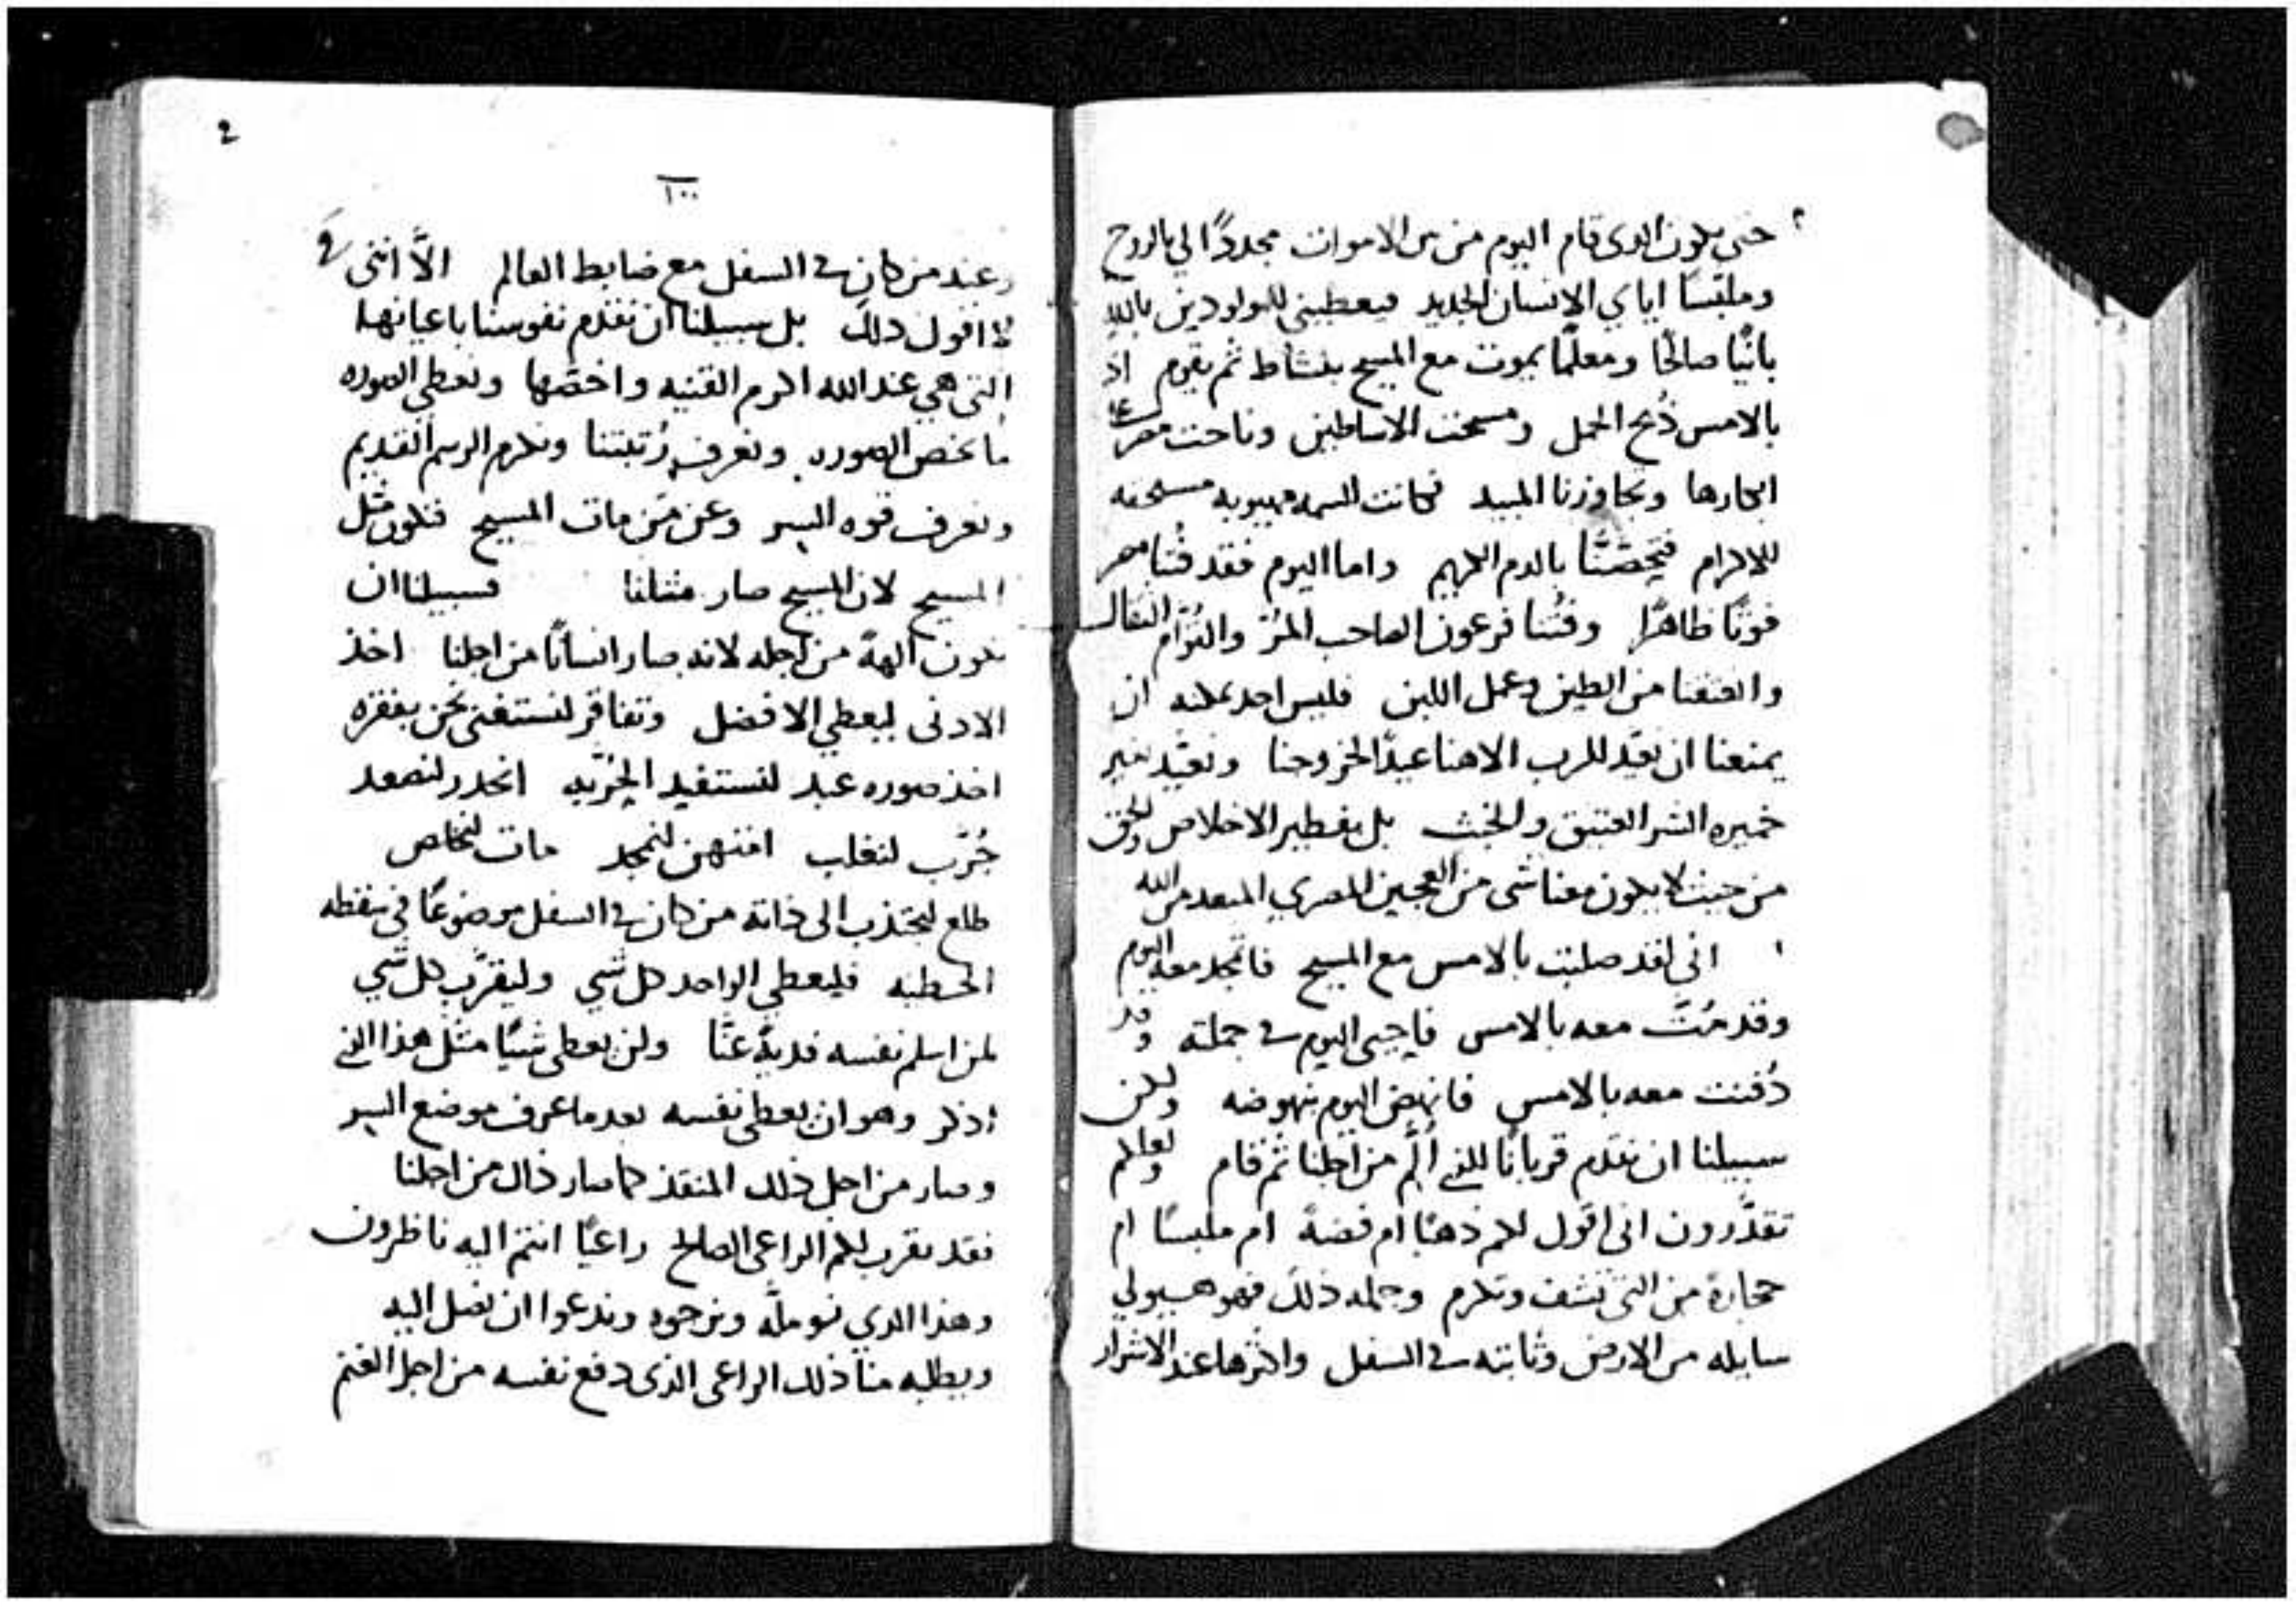 حتى يكون الذى قام اليوم من بين الاموات مجددًا لي بالروح
وملبّسًا اياي الانسان الجديد فيعطيني للمولودين بالله
بانيًا صالحًا ومعلمًا يموت مع المسيح بنشاط ثم يقوم اذ
بالامس ذُبح الحمل ومسحت الاساطين وناحت مصر على
ابكارها وتجاوزنا المبيد فكانت السمه مهيوبه مستحقه
للاكرام فتحصّنّا بالدم الكريم واما اليوم فقد فُتنا مصر
فوتًا ظاهرًا وفُتنا فرعون الصاحب المُرّ والقوّام الثقال
وانعتقنا من الطين وعمل اللبن فليس احد يمكنه ان
يمنعنا ان نعيّد للرب الاهنا عيدًا لخروجنا ونعيّد بغير
خميره الشر العتيق والخبث بل بفطير الاخلاص والحق
من حيث لا يكون معنا شى من العجين المصري المبعد من الله
انى لقد صلبت بالامس مع المسيح فاتمجد معه اليوم
وقد مُتّ معه بالامس فاحيى اليوم في جملته وقد
دُفنت معه بالامس فانهض اليوم بنهوضه ولكن
سبيلنا ان نقدم قربانًا للذي أُلّم من اجلنا ثم قام ولعلكم
تقدّرون انى اقول لكم ذهبًا ام فضةً ام ملبسًا ام
حجارة من التى تشف وتكرم وجمله ذلك فهو هيولي
سايله من الارض وثابته في السفل واكثرها عند الاشرار
2
١٠٠
وعند من كان في السفل مع ضابط العالم الاّ اننى
لا اقول ذلك بل سبيلنا ان نقدم نفوسنا باعيانها
التى هي عند الله اكرم القنيه واخصّها ونعطي الصوره
ما يخص الصوره ونعرف رُتبتنا ونكرم الرسم القديم
ونعرف قوه السر وعن مَن مات المسيح فنكون مثل
المسيح لان المسيح صار مثلنا فسبيلنا ان
نكون آلهةً من اجله لانه صار انسانًا من اجلنا اخذ
الادنى ليعطي الافضل وتفاقر لنستغنى نحن بفقره
اخذ صوره عبد لنستفيد الحُرّيه انحدر لنصعد
جُرّب لنغلب امتهن لنمجد مات لنخلص
طلع ليجتذب الى ذاته من كان في السفل موضوعًا في سقطه
الخطيه فليعطي الواحد كل شي وليقرّب كل شي
لمن اسلم نفسه فديةً عنّا ولن يعطى شيًا مثل هذا الذي
اذكر وهو ان يعطى نفسه بعد ما عرف موضع السر
وصار من اجل ذلك المنقذ كما صار ذاك من اجلنا
فقد يقرب لكم الراعى الصالح راعيًا انتم اليه ناظرون
وهذا الذي نوملّه ونرجوه وندعوا ان نصل اليه
ويطلبه منا ذلك الراعى الذى دفع نفسه من اجل الغنم